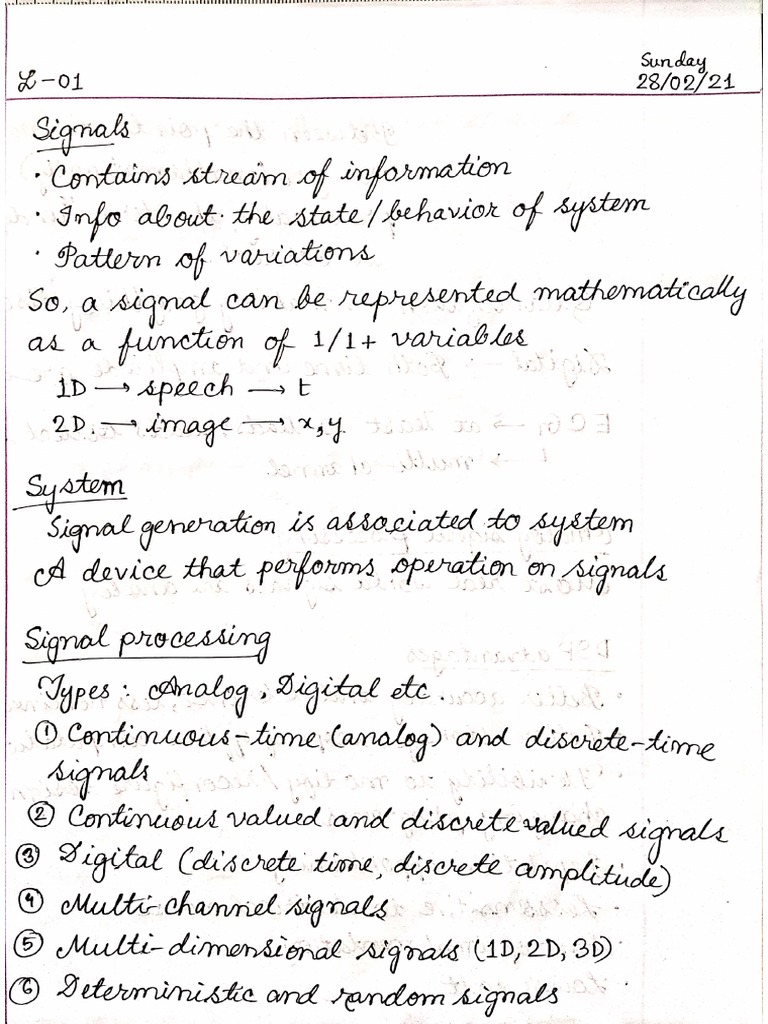 L-01
Sunday
28/02/21
Signals
· Contains stream of information
· Info about the state/behavior of system
· Pattern of variations
So, a signal can be represented mathematically
as a function of 1/1+ variables
1D → speech → t
2D. → image → x, y.
System
Signal generation is associated to system
A device that performs operation on signals
Signal processing
Types: Analog, Digital etc.
① Continuous-time (analog) and discrete-time
signals
② Continuous valued and discrete valued signals
③ Digital (discrete time, discrete amplitude)
④ Multi-channel signals
⑤ Multi-dimensional signals (1D, 2D, 3D)
⑥ Deterministic and random signals